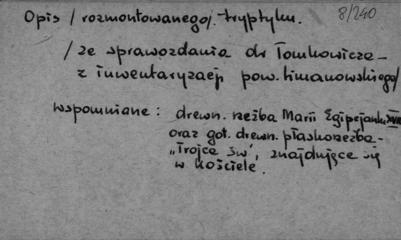 8/240
Opis /rozmontowanego/ tryptyku.
/ze sprawozdania dr Tomkowicza –
z inwentaryzacji pow. limanowskiego/
wspomniane: drewn. rzeźba Marii Egipcjanki
oraz got. drewn. płaskorzeźba –
„Trójca św", znajdujące się
w kościele.